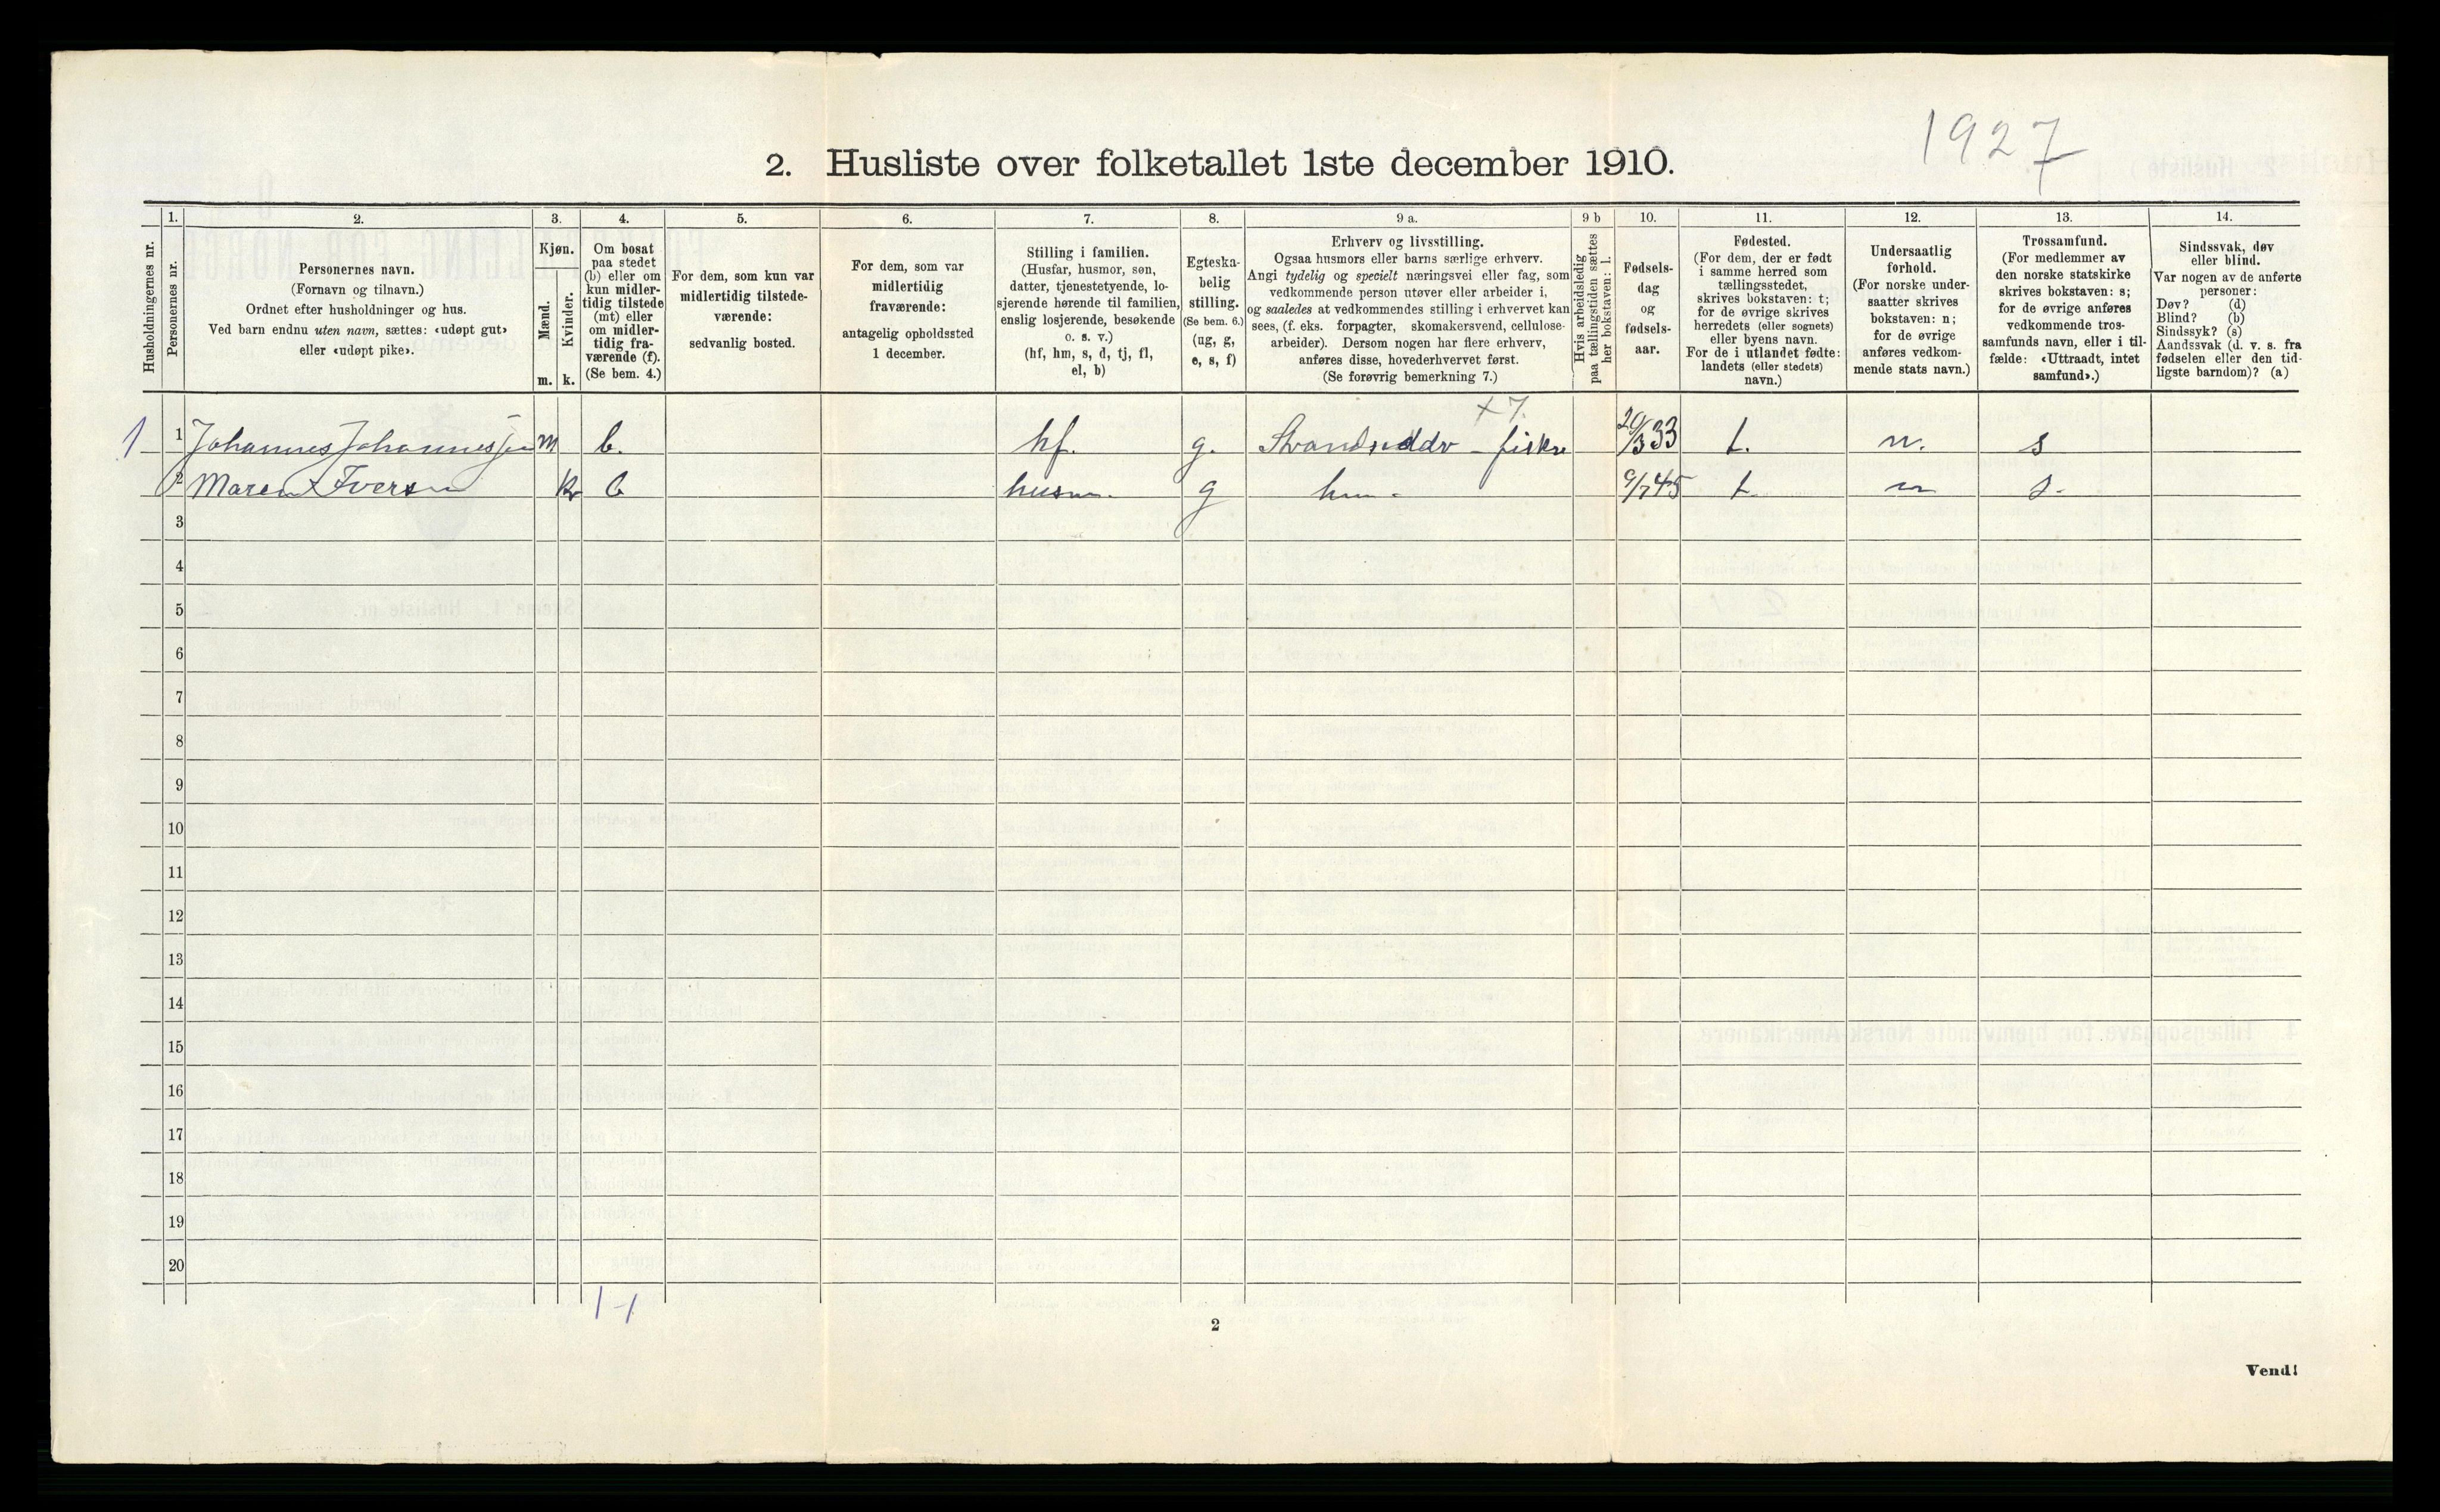 1927
2. Husliste over folketallet 1ste december 1910.
Husholdningernes nr.
1.
Personernes nr.
2.
Personernes navn.
(Fornavn og tilnavn.)
Ordnet efter husholdninger og hus.
Ved barn endnu uten navn, sættes: «udøpt gut»
eller «udøpt pike».
3.
Kjøn.
Mænd.
Kvinder.
m. k.
4.
Om bosat
paa stedet
(b) eller om
kun midler-
tidig tilstede
(mt) eller
om midler-
tidig fra-
værende (f).
(Se bem. 4.)
5.
For dem, som kun var
midlertidig tilstede-
værende:
sedvanlig bosted.
6.
For dem, som var
midlertidig
fraværende:
antagelig opholdssted
1 december.
7.
Stilling i familien.
(Husfar, husmor, søn,
datter, tjenestetyende, lo-
sjerende hørende til familien,
enslig losjerende, besøkende
o. s. v.)
(hf, hm, s, d, tj, fl,
el, b)
8.
Egteska-
belig
stilling.
(Se bem. 6.)
(ug, g,
e, s, f)
9 a.
Erhverv og livsstilling.
Ogsaa husmors eller barns særlige erhverv.
Angi tydelig og specielt næringsvei eller fag, som
vedkommende person utøver eller arbeider i,
og saaledes at vedkommendes stilling i erhvervet kan
sees, (f. eks. forpagter, skomakersvend, cellulose-
arbeider). Dersom nogen har flere erhverv,
anføres disse, hovederhvervet først.
(Se forøvrig bemerkning 7.)
9 b
Hvis arbeidsledig
paa tællingstiden sættes
her bokstaven: l.
10.
Fødsels-
dag
og
fødsels-
aar.
11.
Fødested.
(For dem, der er født
i samme herred som
tællingsstedet,
skrives bokstaven: t;
for de øvrige skrives
herredets (eller sognets)
eller byens navn.
For de i utlandet fødte:
landets (eller stedets)
navn.)
12.
Undersaatlig
forhold.
(For norske under-
saatter skrives
bokstaven: n;
for de øvrige
anføres vedkom-
mende stats navn.)
13.
Trossamfund.
(For medlemmer av
den norske statskirke
skrives bokstaven: s;
for de øvrige anføres
vedkommende tros-
samfunds navn, eller i til-
fælde: «Uttraadt, intet
samfund».)
14.
Sindssvak, døv
eller blind.
Var nogen av de anførte
personer:
Døv? (d)
Blind? (b)
Sindssyk? (s)
Aandssvak (d. v. s. fra
fødselen eller den tid-
ligste barndom)? (a)
1 1 Johannes Johannessen m b. hf. g. fisker t. n. s
2 Maren Iversen k b husm. g t. n s.
3
4
5
6
7
8
9
10
11
12
13
14
15
16
17
18
19
20
1-1
2
Vend!